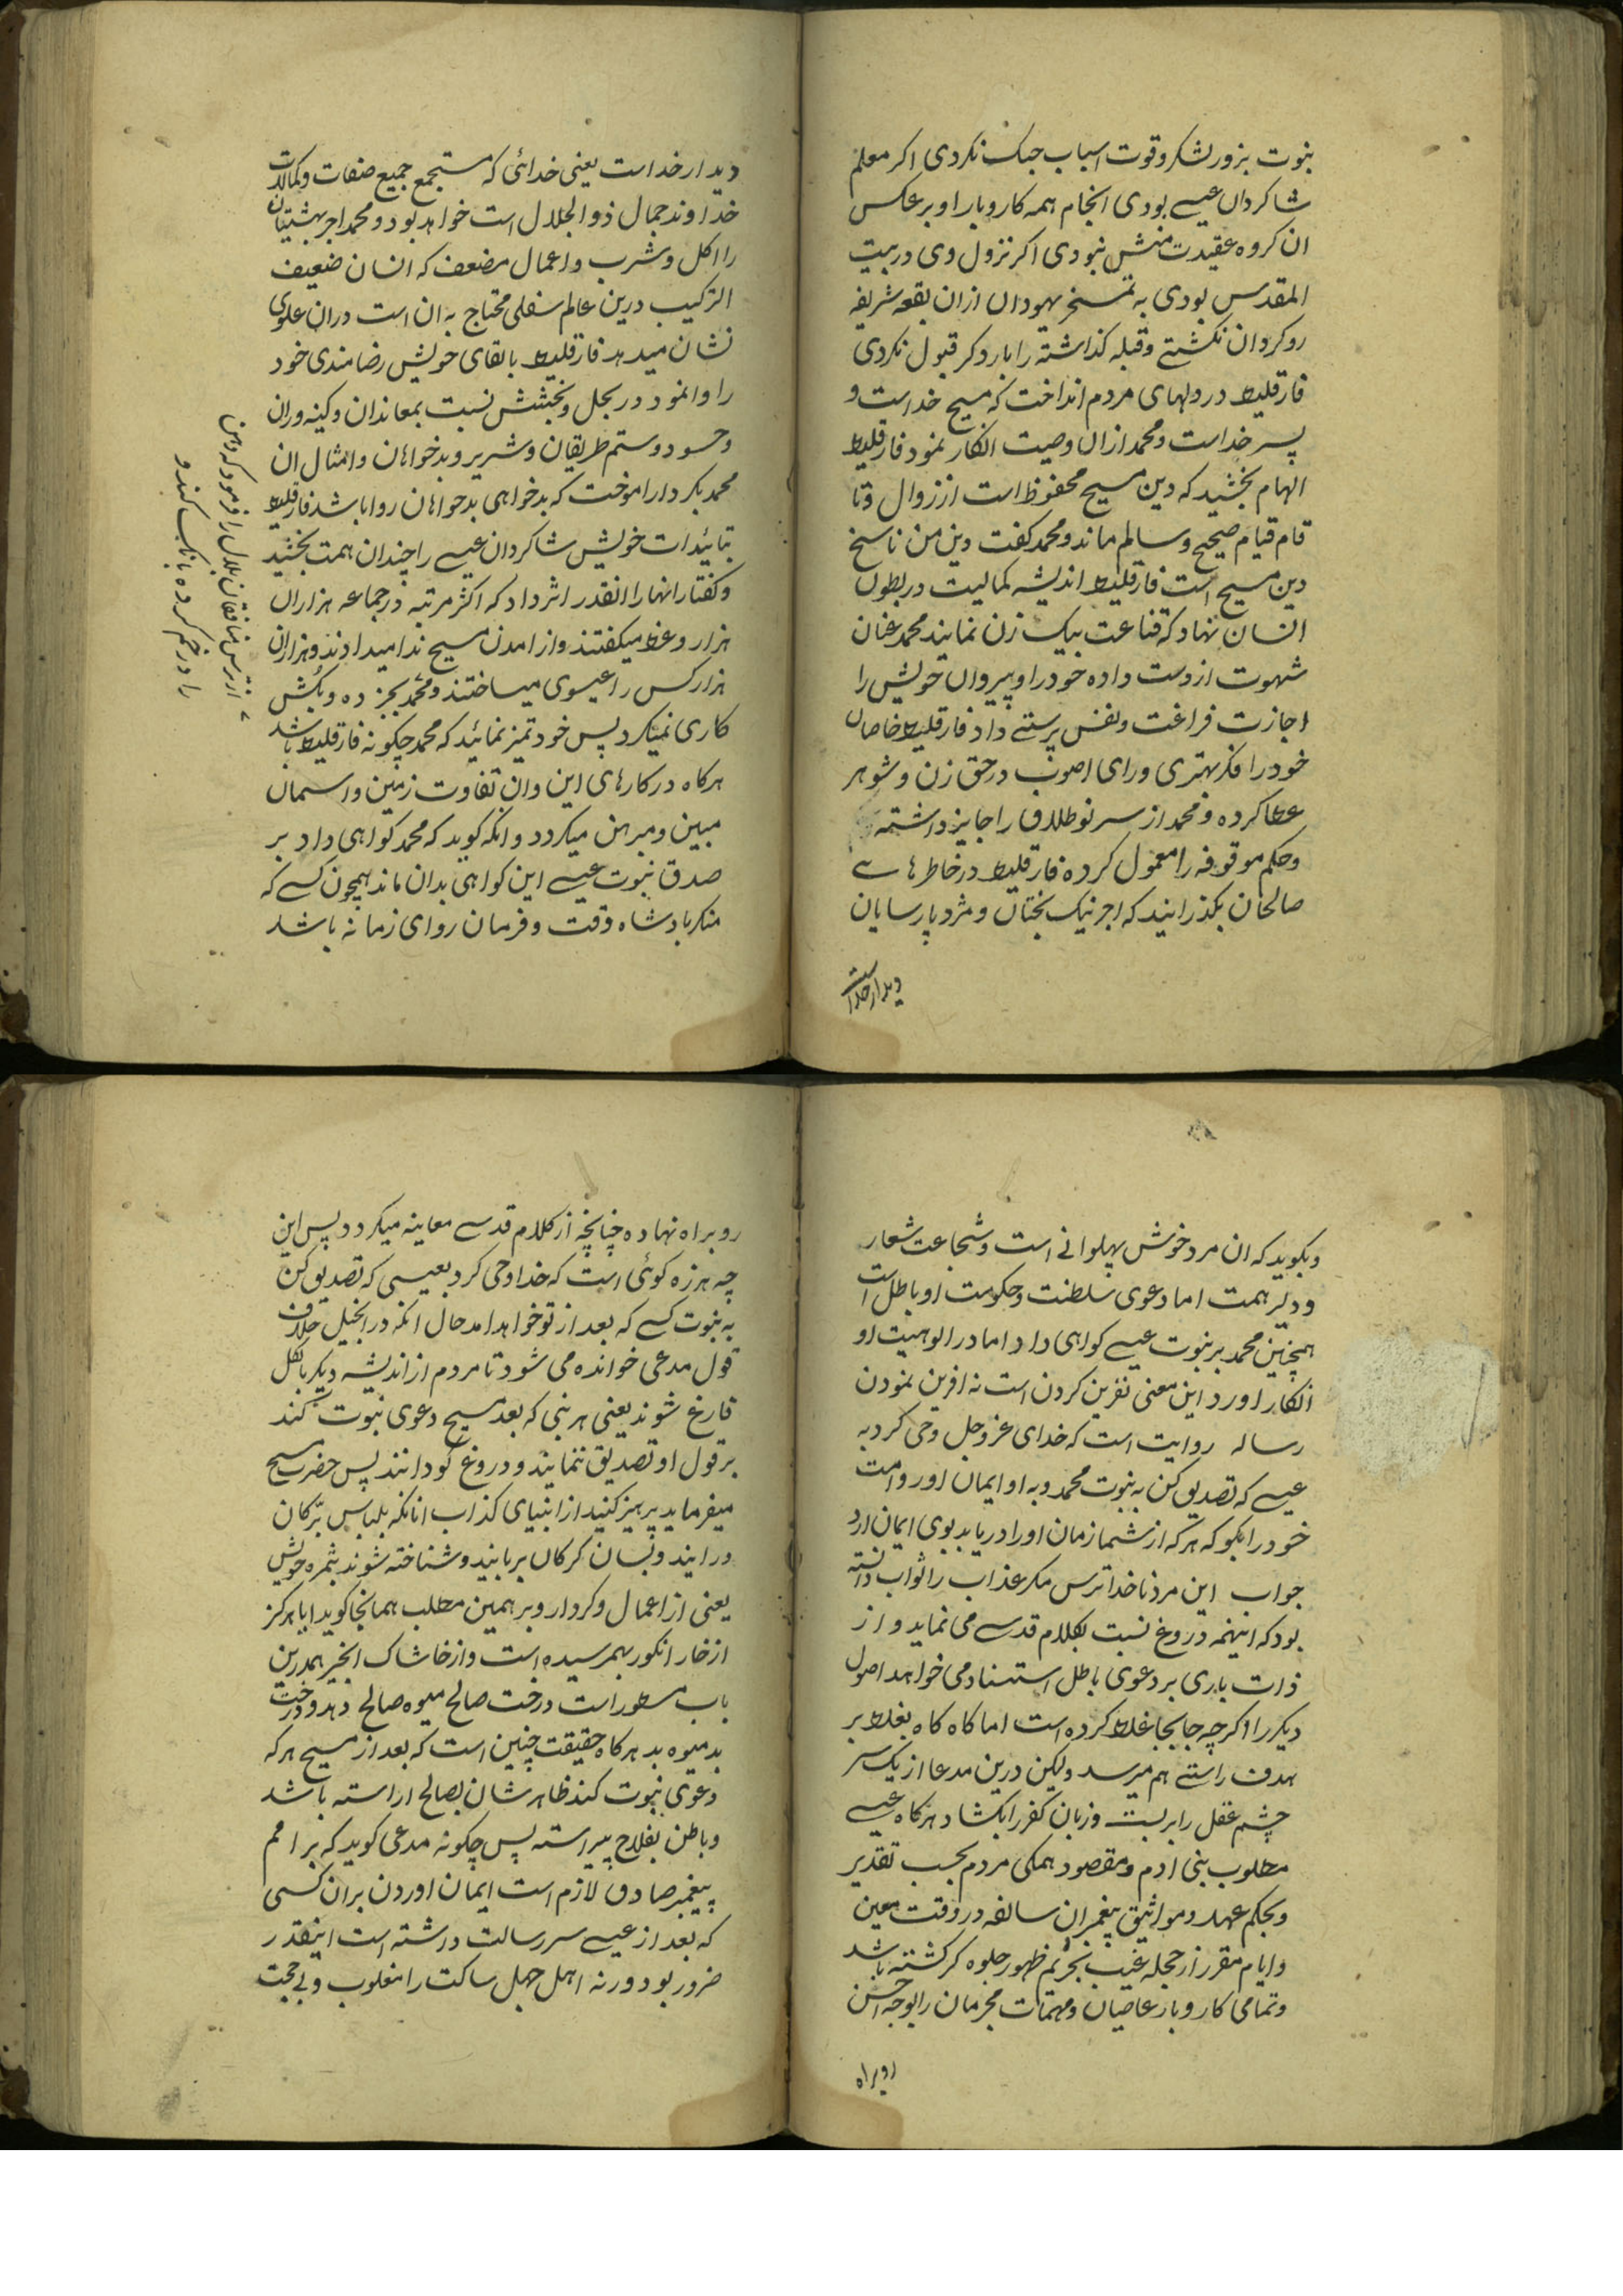 بنوت بزور لشکر وقوت اسباب جنک نکردی اکر معلم
شاکردان عیسے بودی انجام همه کاروبار او بر عکس
ان کروه عقیدت منش نبودی اکر نزول وی در بیت
المقدس بودی به تمسخر یهودان ازان بقعه شریفه
روکردان نکشتے وقبله کذاشته را بار دکر قبول نکردی
فارقلیط در دلهای مردم انداخت که مسیح خداست و
پسر خداست ومحمد ازان وصیت انکار نمود فارقلیط
الهام بخشید که دین مسیح محفوظ است از زوال وتا
قام قیام صحیح وسالم ماند ومحمد کفت دین من ناسخ
دین مسیح است فارقلیط اندیشه کمالیت در بطون
انسان نهاد که قناعت بیک زن نمایند محمد عنان
شهوت از دست داده خود را وپیروان خویش را
اجازت فراغت ونفس پرستے داد فارقلیط خاصان
خود را فکر بهتری ورای اصوب در حق زن وشوهر
عطا کرده ومحمد از سر نو طلاق را جایز داشته
وحکم موقوفه را معمول کرده فارقلیط در خاطر هاے
صالحان بکذرانید که اجر نیک بختان ومزد پارسایان
دیدار خداست
دیدار خداست یعنی خدائی که مستجمع جمیع صفات وکمالات
خداوند جمال ذو الجلال است خواهد بود ومحمد اجر بهشتیان
را اکل وشرب واعمال مضعف که انسان ضعیف
الترکیب درین عالم سفلی محتاج به ان است دران علوی
نشان میدهد فارقلیط بالقای خویش رضامندی خود
را وانمود در بحل وبخشش نسبت بمعاندان وکینه وران
وحسود وستم طریقان وشریر وبدخواهان وامثال ان
محمد بکردار اموخت که بدخواهی بدخواهان روا باشد فارقلیط
بتائیدات خویش شاکردان عیسے را چندان همت بخشید
وکفتار انها را انقدر اثر داد که اکثر مرتبه در جماعه هزاران
هزار وعظ میکفتند واز امدن مسیح ندا میدادند وهزاران
هزار کس را عیسوی میساختند ومحمد بجز ده وبکش
کاری نمیکرد پس خود تمیز نمائید که محمد چکونه فارقلیط باشد
هرکاه در کارهای این وان تفاوت زمین واسمان
مبین ومبرهن میکردد وانکه کوید که محمد کواهی داد بر
صدق نبوت عیسے این کواهی بدان ماند همچون کسے که
منکر بادشاه وقت وفرمان روای زمانه باشد
از ترس منافقان بلال را فرمود که دهن
را در خم کرده بانک کند و
وبکوید که ان مرد خوش پهلوانے است وشجاعت شعار
ودلیر همت اما دعوی سلطنت وحکومت او باطل است
همچنین محمد بر نبوت عیسے کواهی داد اما در الوهیت او
انکار اورد این معنی نفرین کردن است نه افرین نمودن
رساله روایت است که خدای عز وجل وحی کرد به
عیسے که تصدیق کن به نبوت محمد وبه او ایمان اور وامت
خود را بکو که هر که از شما زمان او را دریابد بوی ایمان ارد
جواب این مرد ناخدا ترس مکر عذاب را ثواب دانسته
بود که اینهمه دروغ نسبت بکلام قدسے می نماید واز
ذات باری بر دعوی باطل استناد می خواهد اصول
دیکر را اکرچه جابجا غلط کرده است اما کاه کاه بغلط بر
هدف راستے هم میرسد ولیکن درین مدعا از یک سر
چشم عقل را بربست وزبان کفر را بکشاد هرکاه عیسے
مطلوب بنی ادم ومقصود همکی مردم بحسب تقدیر
وبحکم عهد ومواثیق پیغمبران سالفه در وقت معین
وایام مقرر از حجله غیب بحریم ظهور جلوه کر کشته باشد
وتمامی کاروبار عاصیان ومهمات مجرمان را بوجه احسن
روبراه
روبراه نهاده چنانچه از کلام قدسے معاینه میکردد پس این
چه هرزه کوئی است که خدا وحی کرد بعیسی که تصدیق کن
به نبوت کسے که بعد از تو خواهد امد حال انکه در انجیل خلاف
قول مدعی خوانده می شود تا مردم از اندیشه دیکر بالکل
فارغ شوند یعنی هر نبی که بعد مسیح دعوی نبوت کند
بر قول او تصدیق ننمایند ودروغ کو دانند پس حضرت مسیح
میفرماید پرهیز کنید از انبیای کذاب انانکه بلباس بزکان
در ایند وبسان کرکان بربایند وشناخته شوند بثمره خویش
یعنی از اعمال وکردار وبر همین مطلب همانجا کوید ایا هرکز
از خار انکور بهمرسیده است واز خاشاک انجیر همدرین
باب مسطور است درخت صالح میوه صالح دهد ودرخت
بد میوه بد هرکاه حقیقت چنین است که بعد از مسیح هرکه
دعوی نبوت کند ظاهر شان بصالح اراسته باشد
وباطن بفلاح پیراسته پس چکونه مدعی کوید که بر امم
پیغمبر صادق لازم است ایمان اوردن بران کسی
که بعد از عیسے سر رسالت داشته است اینقدر
ضرور بود ورنه اهل جهل ساکت را مغلوب وبی حجت